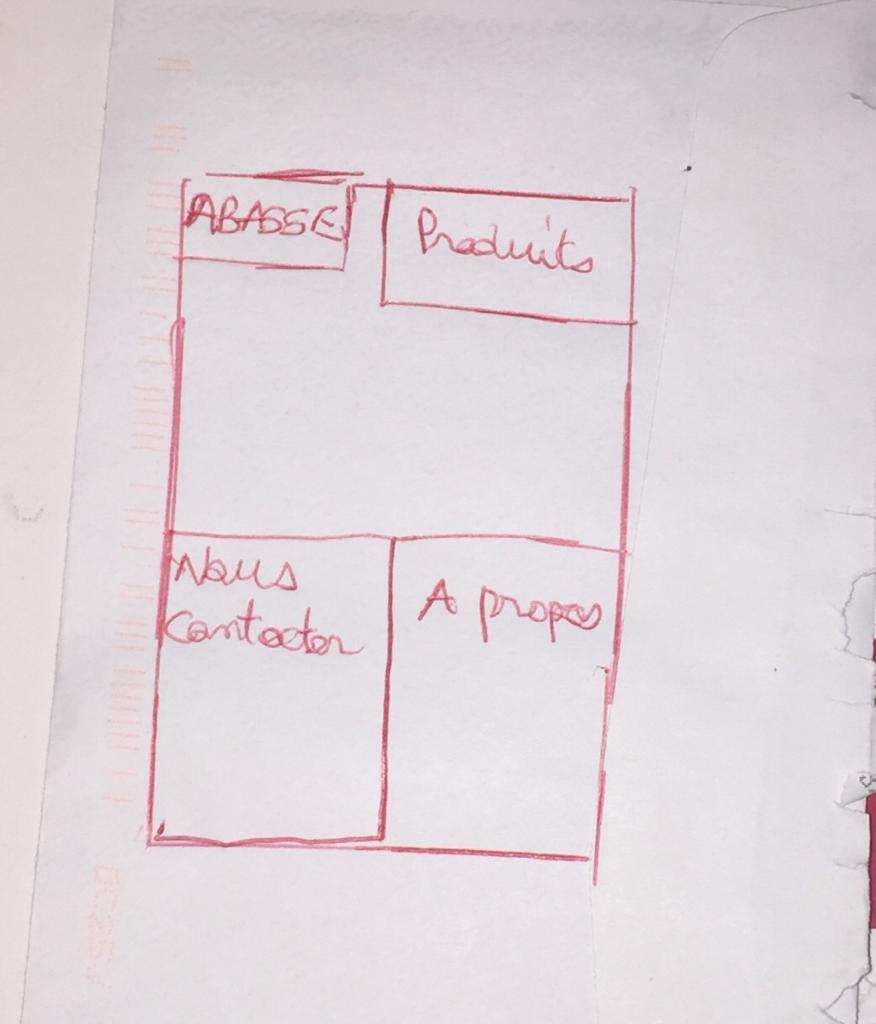 ABASSE
Produits
Nous
Contacter
A propos